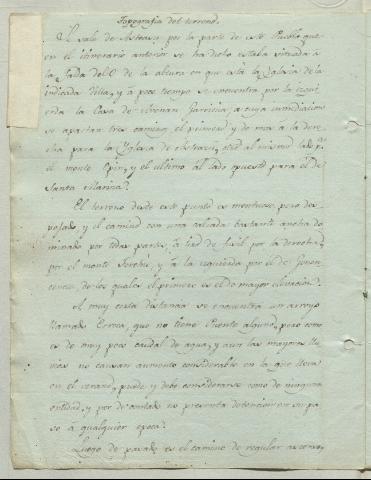 Topografia del terreno.
Sale de Asteasu por la parte de este Pueblo que
en el itinerario anterior se ha dicho estaba situada a
la falda del O de la altura en que está la Yglesia de la
indicada Villa, y á poco tiempo se encuentra por la izqui
erda la Casa de a cuya inmediacion
se apartan tres caminos, el primero y de mas a la dere
cha para la Yglesia de Asteasu, otro al mismo lado pa
el monte y el ultimo al lado opuesto para el de
Santa Marina.
El terreno desde este punto es montuoso, pero des
pejado y el camino con una calzada bastante angosta do
minado por todas partes, á tiro de fusil por la derecha
por el monte y á la izquierda por el de
de los quales el primero es el de mayor elevacion.
A muy corta distancia se encuentra un arroyo
llamado Errea, que no tiene Puente alguno, pero como
es de muy poco caudal de agua, y aun las mayores llu
vias no causan aumento considerable en la que lleva
en el verano, puede y debe considerarse como de ninguna
entidad, y por de contado no presenta detencion en su pa
so a qualquier epoca.
Luego de pasado es el camino de regular ascenso,